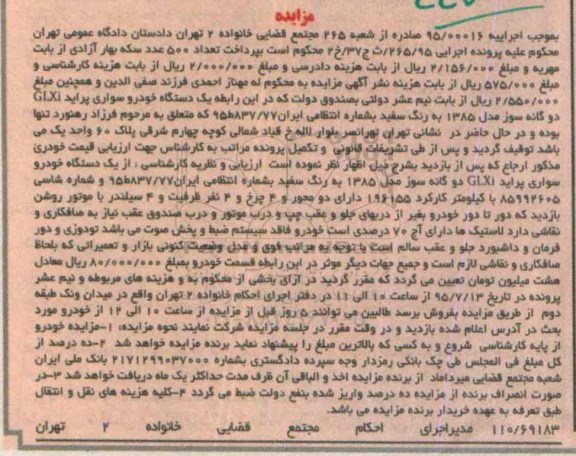 مزایده
بموجب اجراییه ۹۵/۰۰۰۱۶ صادره از شعبه ۲۶۵ مجتمع قضایی خانواده ۲ تهران دادستان دادگاه عمومی تهران
محکوم علیه پرونده اجرایی ۲۶۵/۹۵/ث ج/۳۷/خ۲ محکوم است بپرداخت تعداد ۵۰۰ عدد سکه بهار آزادی از بابت
مهریه و مبلغ ۲/۱۵۶/۰۰۰ ریال از بابت هزینه دادرسی و مبلغ ۲/۰۰۰/۰۰۰ ریال از بابت هزینه کارشناسی و
مبلغ ۵۷۵/۰۰۰ ریال از بابت هزینه نشر آگهی مزایده به محکوم له مهناز احمدی فرزند صفی الدین و همچنین مبلغ
۲/۵۵۰/۰۰۰ ریال از بابت نیم عشر دولتی بصندوق دولت که در این رابطه یک دستگاه خودرو سواری پراید GLXi
دو گانه سوز مدل ۱۳۸۵ به رنگ سفید بشماره انتظامی ایران۷۷/۸۳۷ط۹۵ که متعلق به مرحوم فرزاد رهنورد تنها
بوده و در حال حاضر در نشانی تهران تهرانسر بلوار لاله خ قباد شمالی کوچه چهارم شرقی پلاک ۶۰ واحد یک می
باشد توقیف گردید و پس از طی تشریفات قانونی و تکمیل پرونده مراتب به کارشناس جهت ارزیابی قیمت خودری
مذکور ارجاع که پس از بازدید بشرح ذیل اظهار نظر نموده است ارزیابی و نظریه کارشناسی : از یک دستگاه خودرو
سواری پراید GLXi دو گانه سوز مدل ۱۳۸۵ به رنگ سفید بشماره انتظامی ایران۷۷/۸۳۷ط۹۵ و شماره شاسی
۸۵۹۹۲۶۰۵ با کیلومتر کارکرد ۱۹۶۱۵۵ دارای دو محور و ۴ چرخ و ۴ نفر ظرفیت و ۴ سیلندر با موتور روشن
بازدید که دور تا دور خودرو بغیر از دربهای جلو و عقب چپ و درب موتور و درب صندوق عقب نیاز به صافکاری و
نقاشی دارد لاستیک ها دارای آج ۷۰ درصدی است خودرو فاقد سیستم ضبط و پخش صوت می باشد تودوزی و دور
فرمان و داشبورد جلو و عقب سالم است با توجه به مراتب فوق و مدل وضعیت کنونی بازار و تعمیراتی که بلحاظ
صافکاری و نقاشی لازم است و جمیع جهات دیگر موثر در این رابطه قسمت خودرو بمبلغ ۸۰/۰۰۰/۰۰۰ ریال معادل
هشت میلیون تومان تعیین می گردد که مقرر گردید در ازای بخشی از محکوم به و هزینه های مربوطه و نیم عشر
پرونده در تاریخ ۹۵/۷/۱۳ از ساعت ۱۰ الی ۱۱ در دفتر اجرای احکام خانواده ۲ تهران واقع در میدان ونک طبقه
دوم از طریق مزایده بفروش برسد طالبین می توانند ۵ روز قبل از مزایده از ساعت ۱۰ الی ۱۲ از خودرو مورد
بحث در آدرس اعلام شده بازدید و در وقت مقرر در جلسه مزایده شرکت نمایند نحوه مزایده: ۱-مزایده خودرو
از پایه کارشناسی شروع و به کسی که بالاترین مبلغ را پیشنهاد نماید برنده مزایده خواهد شد ۲-ده درصد از
کل مبلغ فی المجلس طی چک بانکی رمزدار وجه سپرده دادگستری بشماره ۲۱۷۱۲۹۹۰۳۷۰۰۰ بانک ملی ایران
شعبه مجتمع قضایی میرداماد از برنده مزایده اخذ و الباقی آن ظرف مدت حداکثر یک ماه دریافت خواهد شد ۳-در
صورت انصراف برنده از مزایده ده درصد واریز شده بنفع دولت ضبط می گردد ۴-کلیه هزینه های نقل و انتقال
طبق تعرفه به عهده خریدار برنده مزایده می باشد.
۱۱۰/۶۹۱۸۳ مدیراجرای احکام مجتمع قضایی خانواده ۲ تهران